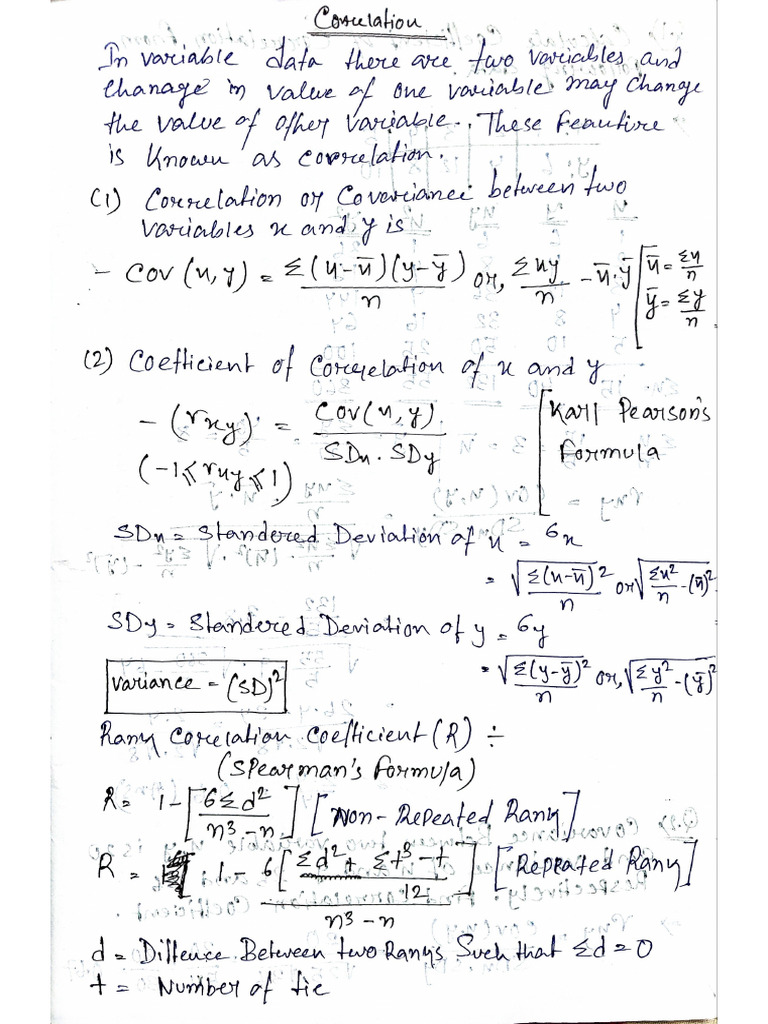 Correlation
In variable data there are two variables and
Chanage in value of one variable may change
the value of other variable. These feauture
is Known as correlation.
(1) Correlation or Covariance between two
variables x and y is
- Cov (x, y) = Σ(x-x̄)(y-ȳ)/n or, Σxy/n - x̄.ȳ [x̄ = Σx/n
ȳ = Σy/n
(2) Coefficient of Correlation of x and y
- (rxy) = Cov(x, y)/SDx . SDy [Karl Pearson's
(-1 ≤ rxy ≤ 1) Formula
SDx = Standered Deviation of x = σx
= √Σ(x-x̄)²/n or √Σx²/n - (x̄)²
SDy = Standered Deviation of y = σy
= √Σ(y-ȳ)²/n or, √Σy²/n - (ȳ)²
Variance = (SD)²
Rank Corelation Coefficient (R) ÷
(Spearman's Formula)
R = 1 - [6Σd²/n³-n] [Non-Repeated Rank]
R = 1 - 6[Σd² + Σt³-t/12]/n³-n [Repeated Rank]
d = Diffence Between two Ranks Such that Σd = 0
t = Number of tie